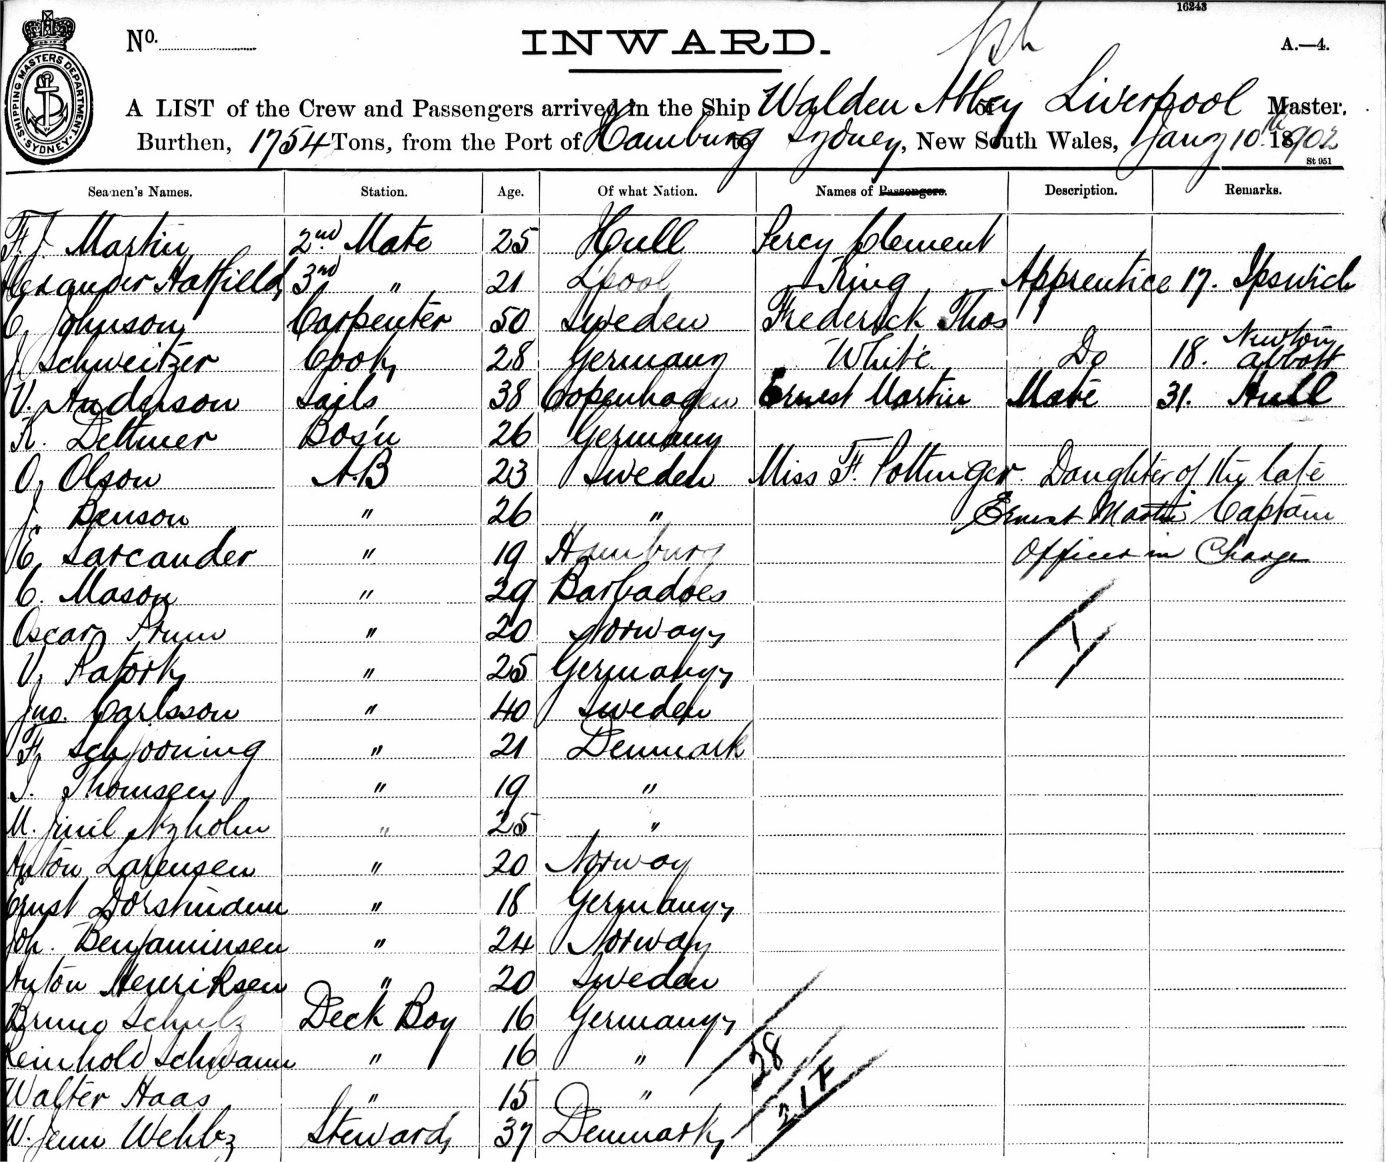 16243
No.
INWARD.
A.—4.
SHIPPING MASTERS DEPARTMENT
SYDNEY
A LIST of the Crew and Passengers arrived in the Ship Walden Abbey of Liverpool Master.
Burthen, 1754 Tons, from the Port of Hamburg to Sydney, New South Wales, Jany 10th 1902
St 951
Seamen's Names. Station. Age. Of what Nation. Names of Passengers. Description. Remarks.
F. J. Martin 2nd Mate 25 Hull Percy Clement
Alexander Hatfield 3rd " 21 L'pool King Apprentice 17. Ipswich
C. Johnson Carpenter 50 Sweden Frederick Thos
J. Schweitzer Cook 28 Germany White Do 18. Newton Abbott
V. Anderson Sails 38 Copenhagen Ernest Martin Mate 31. Hull
K. Dettmer Bos'n 26 Germany
O. Olson A.B 23 Sweden Miss F. Pottinger Daughter of the late
J. Benson " 26 " Ernest Martin Captain
E. Sarcander " 19 Hamburg Officer in Charge
C. Mason " 29 Barbadoes
Oscar " 20 Norway 1
V. " 25 Germany
Jno. Carlsson " 40 Sweden
Schjooning " 21 Denmark
Thomsen " 19 "
M. " 25 "
Anton Larensen " 20 Norway
Ernst " 18 Germany
Joh. Benjaminsen " 24 Norway
Anton Henriksen " 20 Sweden
Bruno Schulz Deck Boy 16 Germany
Reinhold Schwann " 16 " 28
Walter Haas " 15 " 21 F
W. Steward 37 Denmark